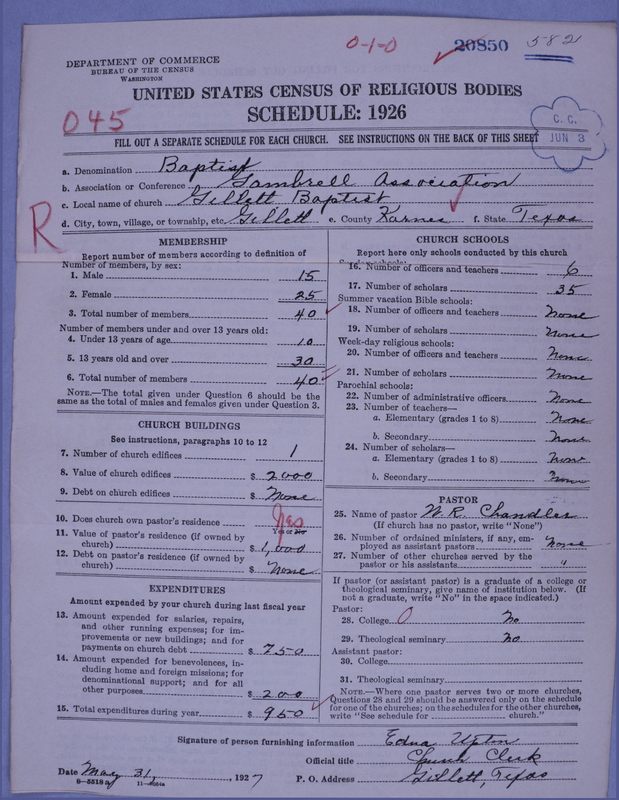 0-1-0 20850 582
DEPARTMENT OF COMMERCE
BUREAU OF THE CENSUS
WASHINGTON
UNITED STATES CENSUS OF RELIGIOUS BODIES
SCHEDULE: 1926
045
C. C.
JUN 3
FILL OUT A SEPARATE SCHEDULE FOR EACH CHURCH. SEE INSTRUCTIONS ON THE BACK OF THIS SHEET
a. Denomination Baptist
b. Association or Conference Gambrell Association
c. Local name of church Gillett Baptist
d. City, town, village, or township, etc. Gillett e. County Karnes f. State Texas
R
MEMBERSHIP
Report number of members according to definition of
Number of members, by sex:
1. Male 15
2. Female 25
3. Total number of members 40
Number of members under and over 13 years old:
4. Under 13 years of age 10
5. 13 years old and over 30
6. Total number of members 40
NOTE.—The total given under Question 6 should be
same as the total of males and females given under Question 3.
CHURCH BUILDINGS
See instructions, paragraphs 10 to 12
7. Number of church edifices 1
8. Value of church edifices $ 2000
9. Debt on church edifices $ None
10. Does church own pastor's residence Yes
Yes or No
11. Value of pastor's residence (if owned by
church) $ 1,000
12. Debt on pastor's residence (if owned by
church) $ None
EXPENDITURES
Amount expended by your church during last fiscal year
13. Amount expended for salaries, repairs,
and other running expenses; for im-
provements or new buildings; and for
payments on church debt $ 750
14. Amount expended for benevolences, in-
cluding home and foreign missions; for
denominational support; and for all
other purposes $ 200
15. Total expenditures during year $ 950
CHURCH SCHOOLS
Report here only schools conducted by this church
16. Number of officers and teachers 6
17. Number of scholars 35
Summer vacation Bible schools:
18. Number of officers and teachers None
19. Number of scholars None
Week-day religious schools:
20. Number of officers and teachers None
21. Number of scholars None
Parochial schools:
22. Number of administrative officers None
23. Number of teachers—
a. Elementary (grades 1 to 8) None
b. Secondary None
24. Number of scholars—
a. Elementary (grades 1 to 8) None
b. Secondary None
PASTOR
25. Name of pastor W. R. Chandler
(If church has no pastor, write "None")
26. Number of ordained ministers, if any, em-
ployed as assistant pastors None
27. Number of other churches served by the
pastor or his assistants "
If pastor (or assistant pastor) is a graduate of a college or
theological seminary, give name of institution below. (If
not a graduate, write "No" in the space indicated.)
Pastor:
28. College 0 No
29. Theological seminary No
Assistant pastor:
30. College
31. Theological seminary
NOTE.—Where one pastor serves two or more churches,
Questions 28 and 29 should be answered only on the schedule
for one of the churches; on the schedules for the other churches,
write "See schedule for church."
Signature of person furnishing information Edna Upton
Official title Church Clerk
Date May 31, 1927 P. O. Address Gillett, Texas